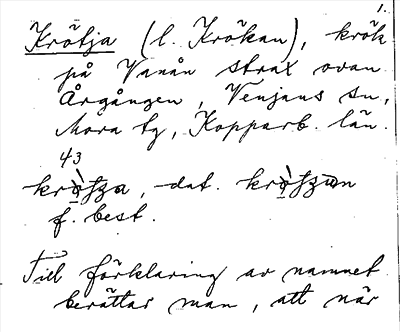 1.
Krötja (l. Krökan), krök
på Vanån strax ovan
Årgången, Venjans sn,
Mora tg, Kopparb. län.
43
, dat.
f. best.
Till förklaring av namnet
berättar man, att när